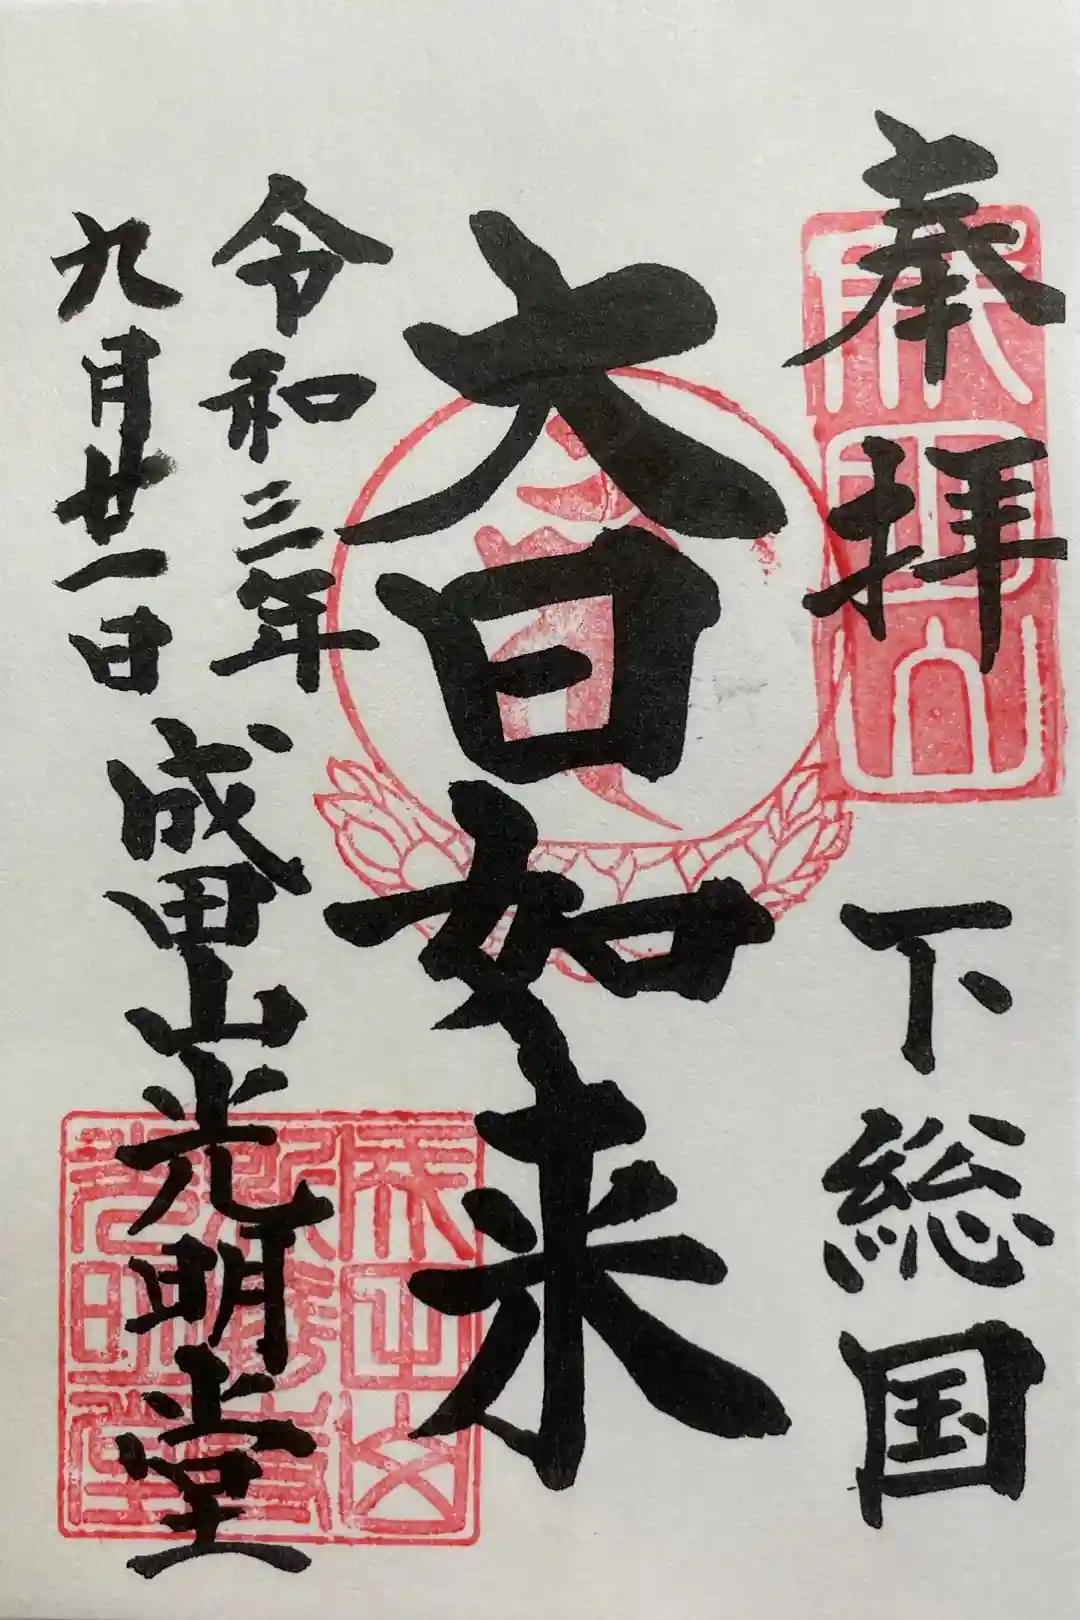 奉拝
下総国
大日如来
令和三年
九月廿一日
成田山光明堂
成田山